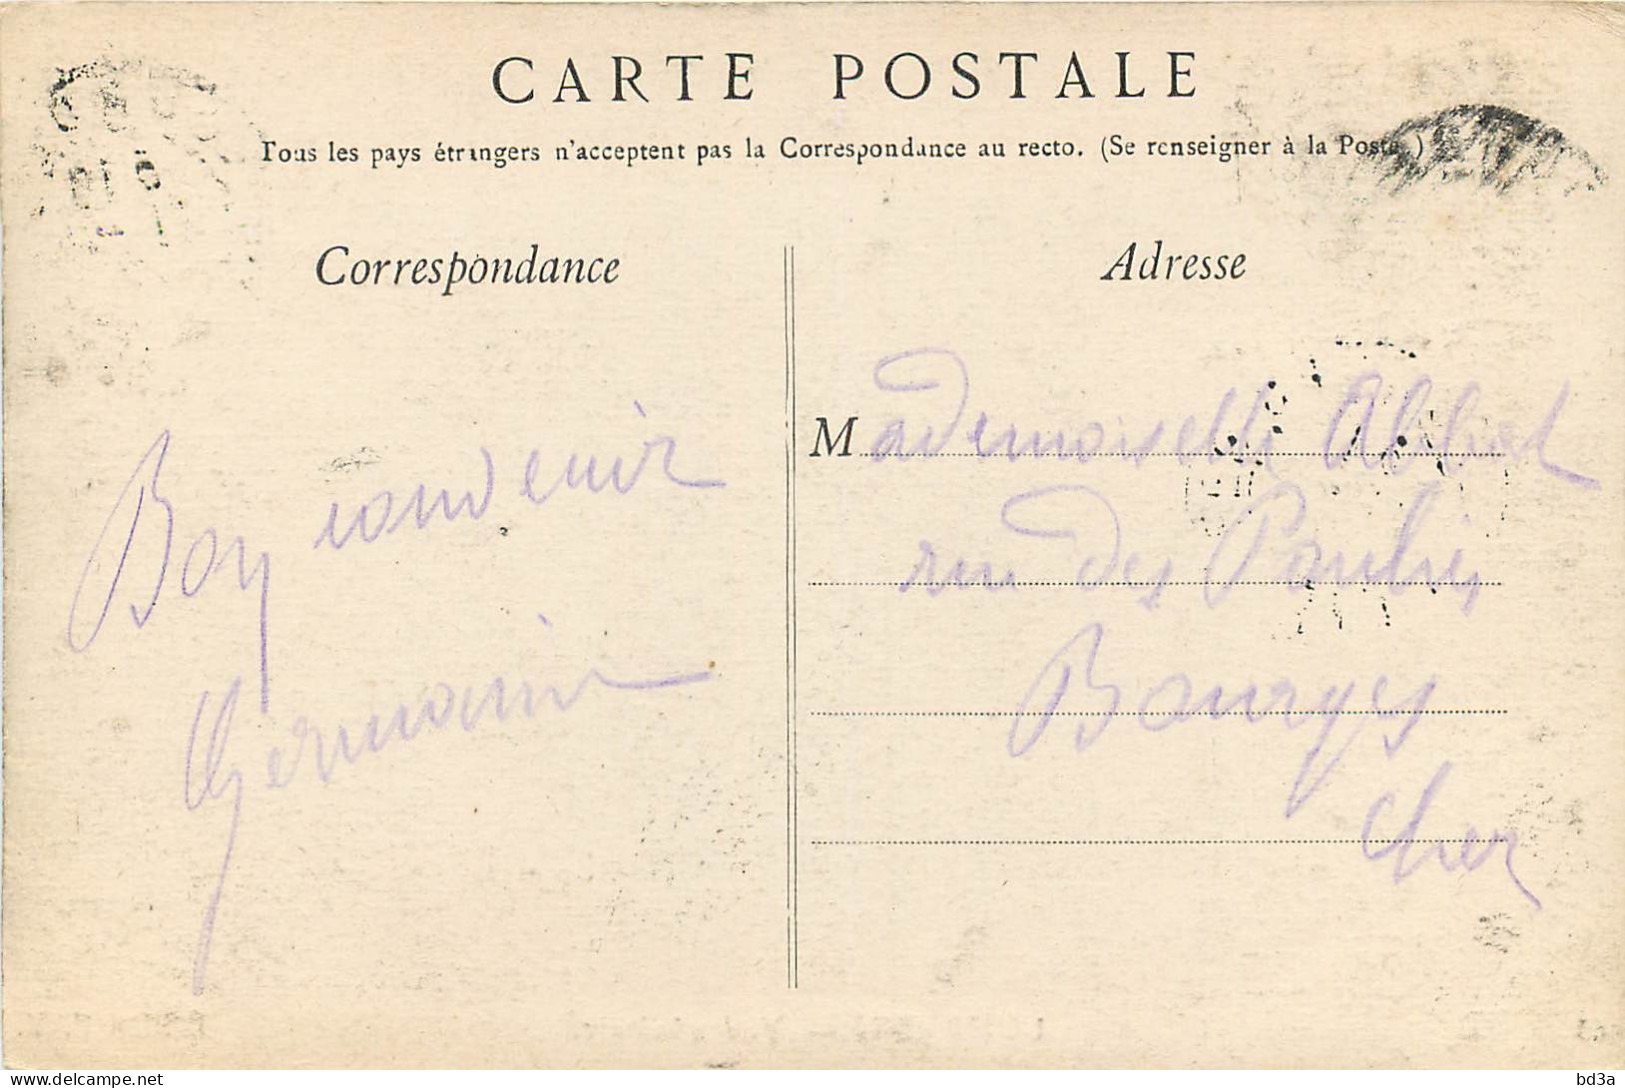 CARTE POSTALE
Tous les pays étrangers n'acceptent pas la Correspondance au recto. (Se renseigner à la Poste.)
Correspondance
Bon souvenir
Germaine
Adresse
Mademoiselle
rue des
Bourges
Cher
bd3a